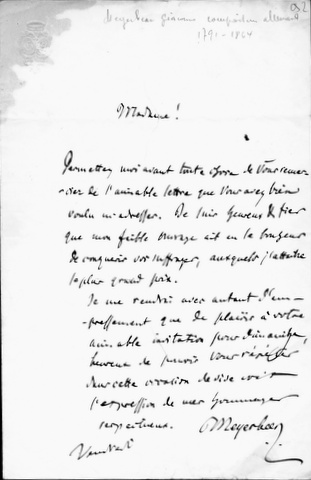 Meyerbeer Giacomo compositeur allemand
1791-1864
92
Madame!
Permettez moi avant toute chose de Vous remer-
-cier de l'aimable lettre que Vous avez bien
voulu m'adresser. Je suis heureux & fier
que mon faible ouvrage ait eu le bonheur
de conquerir vos suffrages, auxquels j'attache
le plus grand prix.
Je me rendrai avec autant d'em-
-pressement que de plaisir à votre
aimable invitation pour dimanche,
heureux de pouvoir Vous réitérer
dans cette occasion de vive voix
l'expression de mes hommages
respectueux. Meyerbeer
Vendredi